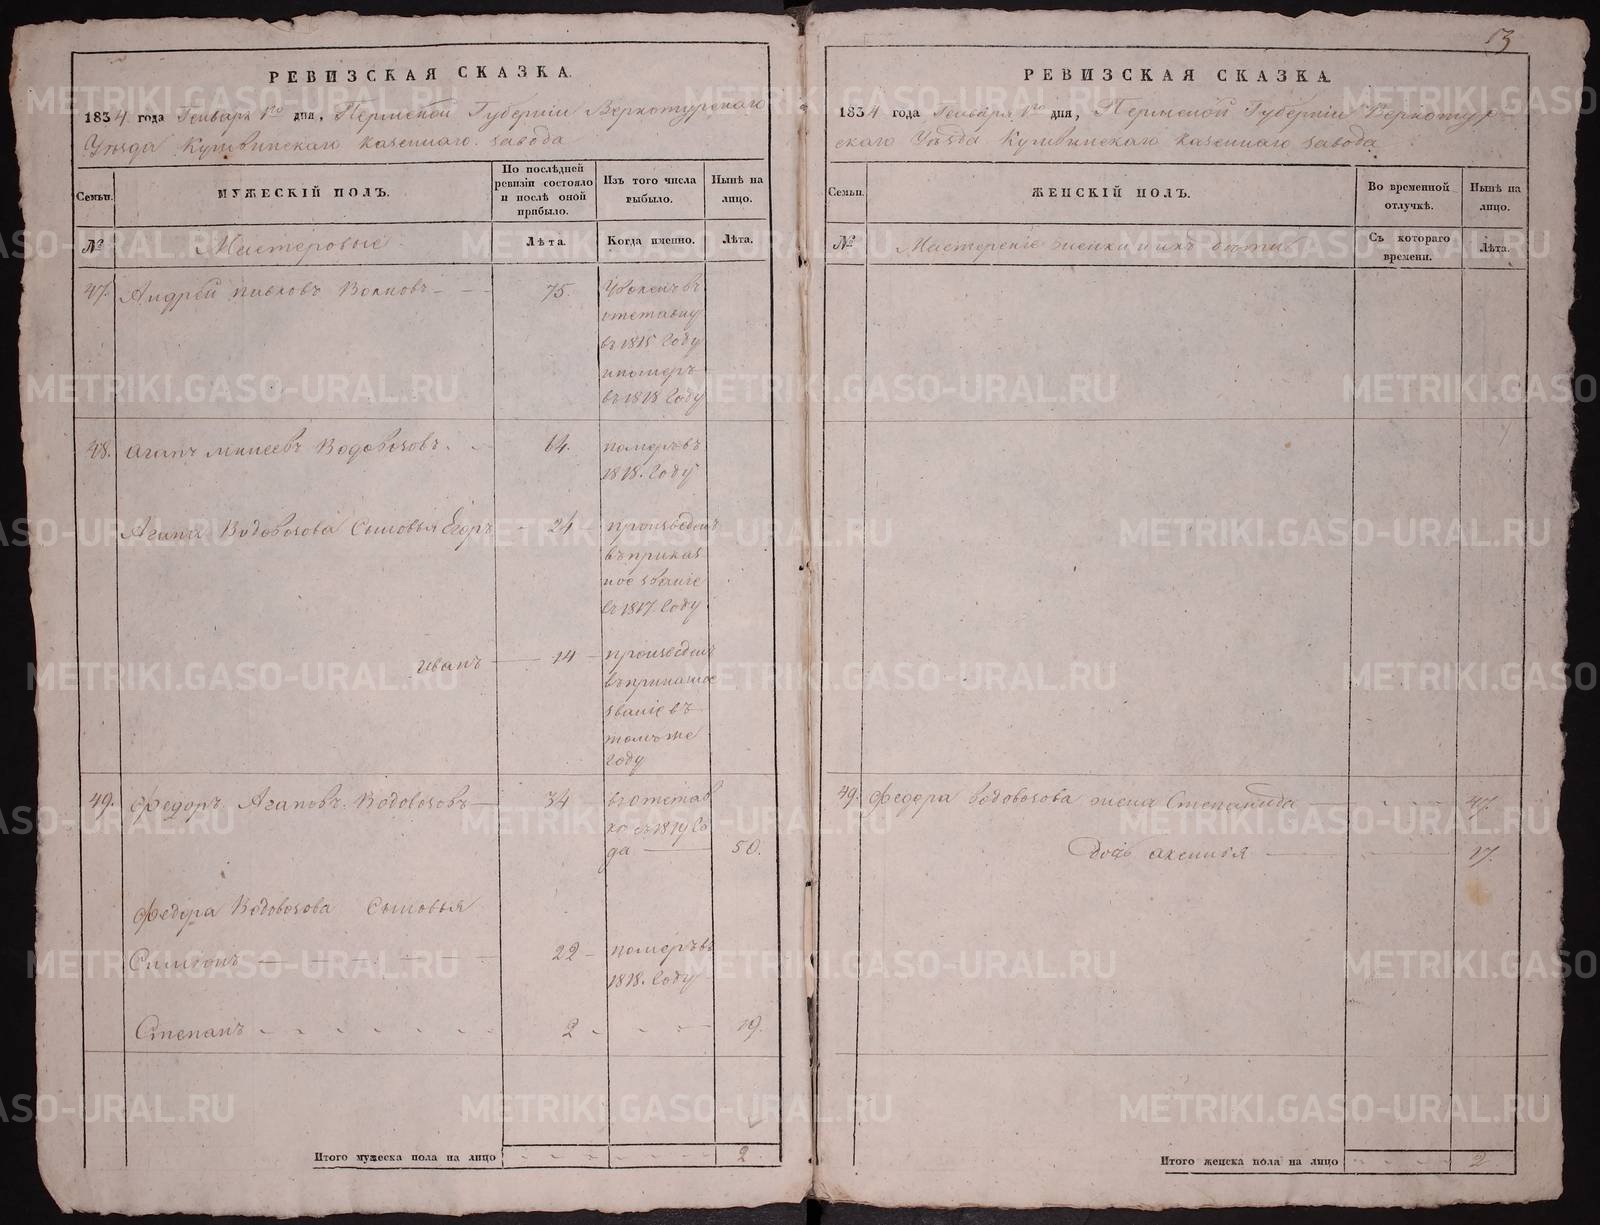 РЕВИЗСКАЯ СКАЗКА.
1834 года Генваря 1го дня, Пермской Губернии Верхотурскаго
Уѣзда Кушвинскаго казеннаго завода
Семьи.
МУЖЕСКІЙ ПОЛЪ.
По послѣдней ревизіи состояло и послѣ оной прибыло.
Изъ того числа выбыло.
Нынѣ на лицо.
№
Мастеровые
Лѣта.
Когда именно.
Лѣта.
47. Андрей Волковъ 75.
отставку
въ 1815 году
и померъ
въ 1818 году
48. Агапъ Водовозовъ 64. померъ въ
1818. году
Агапа Водовозова Сыновья Егоръ 24 произведенъ
въ приказ
ное званіе
въ 1817 году
Иванъ 14 произведенъ
въ приказное
званіе въ
томъ же
году
49. Федоръ Агаповъ Водовозовъ 34 въ отстав
кѣ съ 1819 го
да 50.
Федора Водовозова Сыновья
Симионъ 22 померъ въ
1818. году
Степанъ 2 19.
Итого мужеска пола на лицо 2.
13
РЕВИЗСКАЯ СКАЗКА.
1834 года Генваря 1го дня, Пермской Губерніи Верхотур
скаго Уѣзда Кушвинскаго казеннаго завода
Семьи.
ЖЕНСКІЙ ПОЛЪ.
Во временной отлучкѣ.
Нынѣ на лицо.
№
Мастерскіе женки и ихъ дѣти
Съ котораго времени.
Лѣта.
49. Федора Водовозова жена Степанида 47.
Дочь Аксинья 17.
Итого женска пола на лицо 2
METRIKI.GASO-URAL.RU